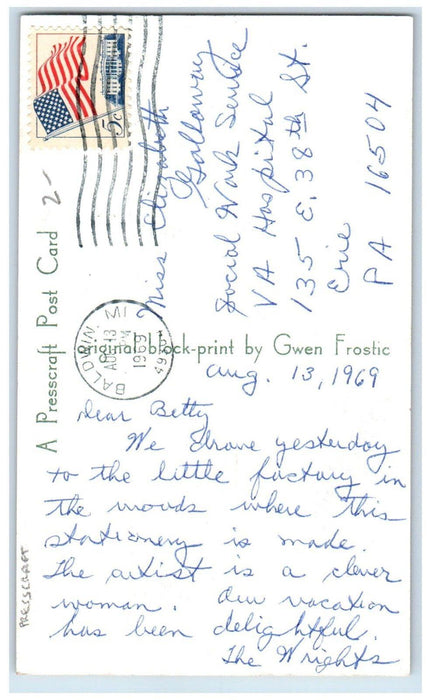 5c
2-
Miss Elizabeth
Galloway
Social Work Service
VA Hospital
135 E. 38th St.
Erie
PA 16504
A Presscraft Post Card
BALDWIN, MI
AUG 13
PM
1969
original block-print by Gwen Frostic
Aug. 13, 1969
Dear Betty
We drove yesterday
to the little factory in
the woods where this
stationery is made.
The artist is a clever
woman. Our vacation
has been delightful.
The Wrights
PRESSCRAFT